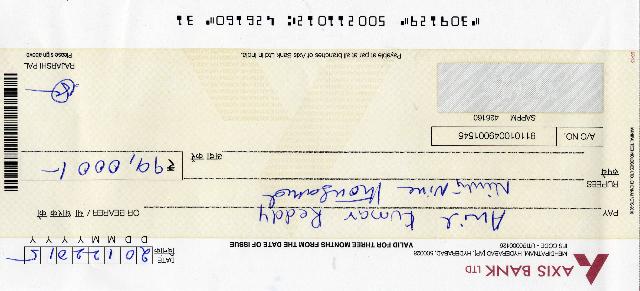 AXIS BANK LTD
MEHDIPATNAM, HYDERABAD [AP], HYDERABAD, 500028
IFS CODE - UTIB0000126
VALID FOR THREE MONTHS FROM THE DATE OF ISSUE
DATE दिनांक 20122015
D D M M Y Y Y Y
PAY Anil Kumar Reddy OR BEARER / या धारक को
RUPEES रुपये Ninty Nine Thousand
अदा करें ₹ 99,000/-
A/C NO. 911010049001545
SAPPM 426160
RAJARSHI PAL
Payable at par at all branches of Axis Bank Ltd in India.
Please sign above
⑈309129⑈ 500211012⑆ 426160⑈ 31